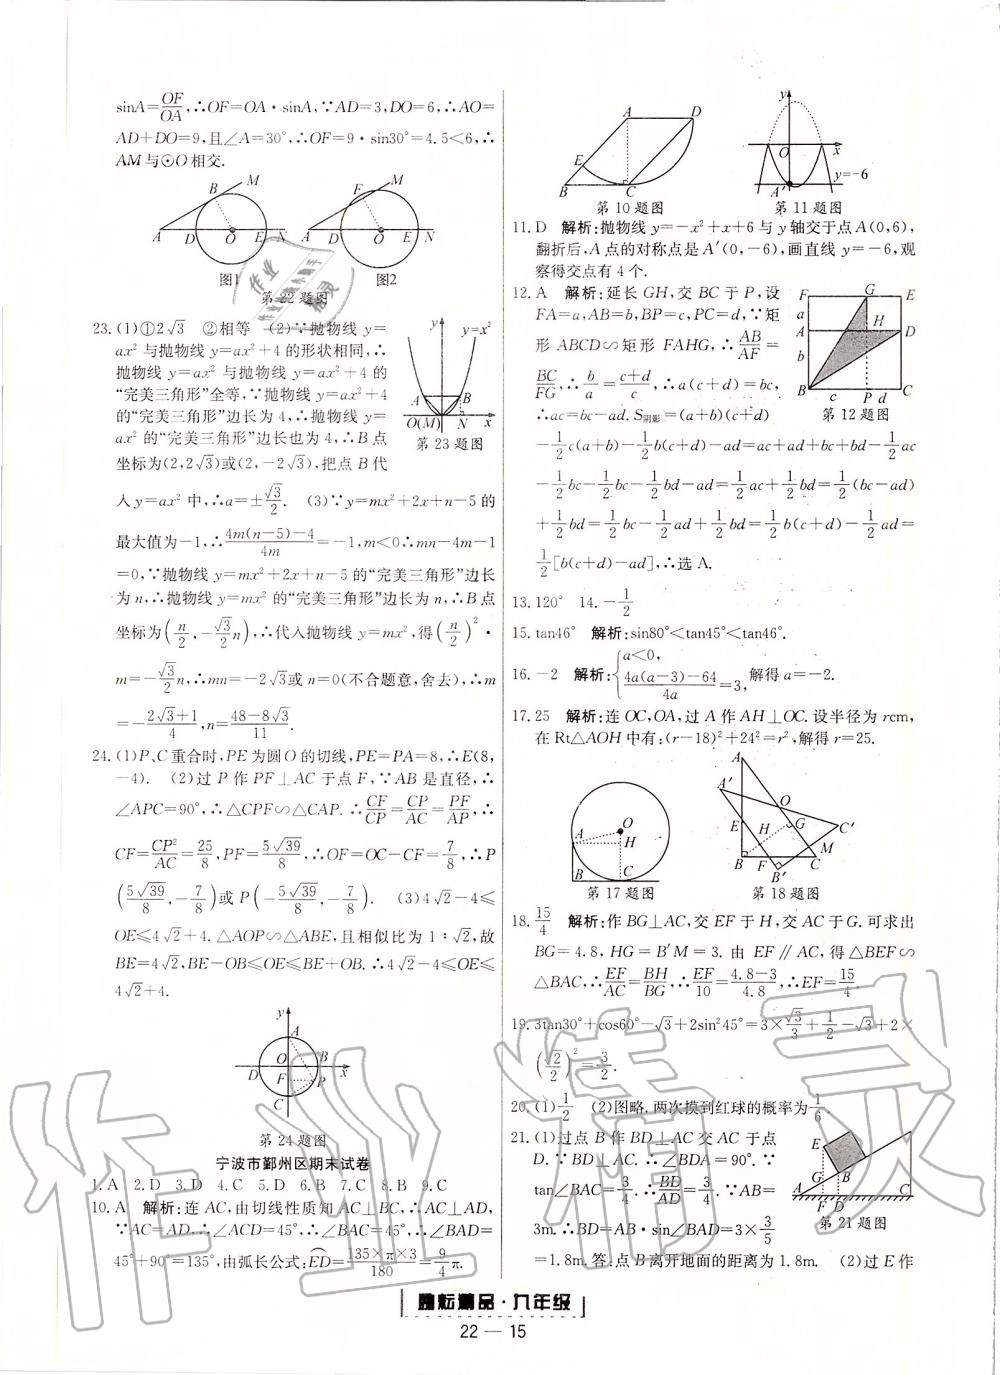 sinA=OF/OA,∴OF=OA·sinA,∵AD=3,DO=6,∴AO=
AD+DO=9,且∠A=30°,∴OF=9·sin30°=4.5<6,∴
AM与⊙O相交.
B M A D O E N
图1
F M A D O E N
图2
第22题图
23.(1)①2√3 ②相等 (2)∵抛物线y=
ax²与抛物线y=ax²+4的形状相同,∴
抛物线y=ax²与抛物线y=ax²+4的
“完美三角形”全等,∵抛物线y=ax²+4
的“完美三角形”边长为4,∴抛物线y=
ax²的“完美三角形”边长也为4,∴B点
坐标为(2,2√3)或(2,-2√3),把点B代
y y=x² A B O(M) N x
第23题图
入y=ax²中,∴a=±√3/2. (3)∵y=mx²+2x+n-5的
最大值为-1,∴(4m(n-5)-4)/4m=-1,m<0∴mn-4m-1
=0,∵抛物线y=mx²+2x+n-5的“完美三角形”边长
为n,∴抛物线y=mx²的“完美三角形”边长为n,∴B点
坐标为(n/2,-√3/2n),∴代入抛物线y=mx²,得(n/2)²·
m=-√3/2n,∴mn=-2√3或n=0(不合题意,舍去),∴m
=-(2√3+1)/4,n=(48-8√3)/11.
24.(1)P、C重合时,PE为圆O的切线,PE=PA=8,∴E(8,
-4). (2)过P作PF⊥AC于点F,∵AB是直径,∴
∠APC=90°,∴△CPF∽△CAP.∴CF/CP=CP/AC=PF/AP,∴
CF=CP²/AC=25/8,PF=5√39/8,∴OF=OC-CF=7/8,∴P
(5√39/8,-7/8)或P(-5√39/8,-7/8). (3)4√2-4≤
OE≤4√2+4.△AOP∽△ABE,且相似比为1:√2,故
BE=4√2,BE-OB≤OE≤BE+OB.∴4√2-4≤OE≤
4√2+4.
y A D O B x F P C
第24题图
宁波市鄞州区期末试卷
1.A 2.D 3.D 4.C 5.D 6.B 7.C 8.B 9.C
10.A 解析:连AC,由切线性质知AC⊥BC,∴AC⊥AD,
∵AC=AD,∴∠ACD=45°,∴∠BAC=45°,∴∠BAD=
45°+90°=135°,由弧长公式:ED=(135×π×3)/180=9/4π.
A D E B C
第10题图
y O x y=-6 A′
第11题图
11.D 解析:抛物线y=-x²+x+6与y轴交于点A(0,6),
翻折后,A点的对称点是A′(0,-6),画直线y=-6,观
察得交点有4个.
12.A 解析:延长GH,交BC于P,设
FA=a,AB=b,BP=c,PC=d,∵矩
形ABCD∽矩形FAHG,∴AB/AF=
BC/FG,∴b/a=(c+d)/c,∴a(c+d)=bc,
∴ac=bc-ad.S阴影=(a+b)(c+d)
F G E a H A D b B c P d C
第12题图
-1/2c(a+b)-1/2b(c+d)-ad=ac+ad+bc+bd-1/2ac
-1/2bc-1/2bc-1/2bd-ad=1/2ac+1/2bd=1/2(bc-ad)
+1/2bd=1/2bc-1/2ad+1/2bd=1/2b(c+d)-1/2ad=
1/2[b(c+d)-ad],∴选A.
13.120° 14.-1/2
15.tan46° 解析:sin80°<tan45°<tan46°.
16.-2 解析:{a<0, (4a(a-3)-64)/4a=3, 解得a=-2.
17.25 解析:连OC,OA,过A作AH⊥OC.设半径为rcm,
在Rt△AOH中有:(r-18)²+24²=r²,解得r=25.
O A H B C
第17题图
A A′ O E H G C′ M B F B′ C
第18题图
18.15/4 解析:作BG⊥AC,交EF于H,交AC于G.可求出
BG=4.8,HG=B′M=3.由 EF∥AC,得△BEF∽
△BAC,∴EF/AC=BH/BG,∴EF/10=(4.8-3)/4.8,∴EF=15/4.
19.3tan30°+cos60°-√3+2sin²45°=3×√3/3+1/2-√3+2×
(√2/2)²=3/2.
20.(1)1/2 (2)图略.两次摸到红球的概率为1/6.
21.(1)过点B作BD⊥AC交AC于点
D.∵BD⊥AC.∴∠BDA=90°.∵
tan∠BAC=3/4,∴BD/AD=3/4.∵AB=
3m.∴BD=AB·sin∠BAD=3×3/5
=1.8m.答:点B离开地面的距离为1.8m. (2)过E作
E B A F D C
第21题图
励耘精品·九年级
22—15
作业精灵